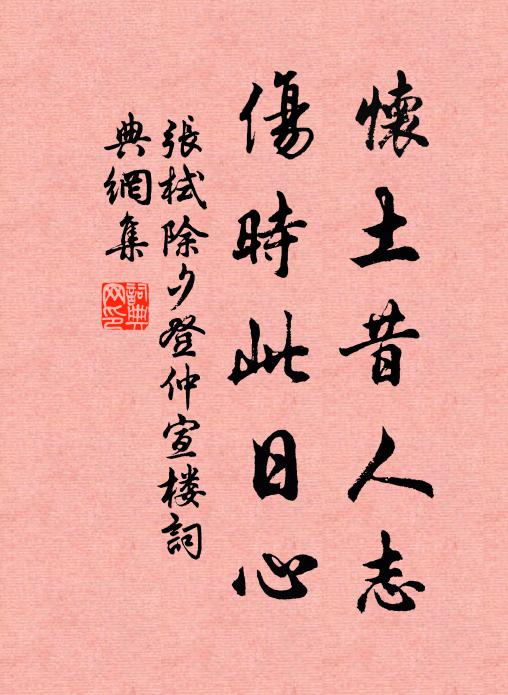 懷土昔人志
傷時此日心
張栻除夕登仲宣楼詞
典網集
詞典
网印